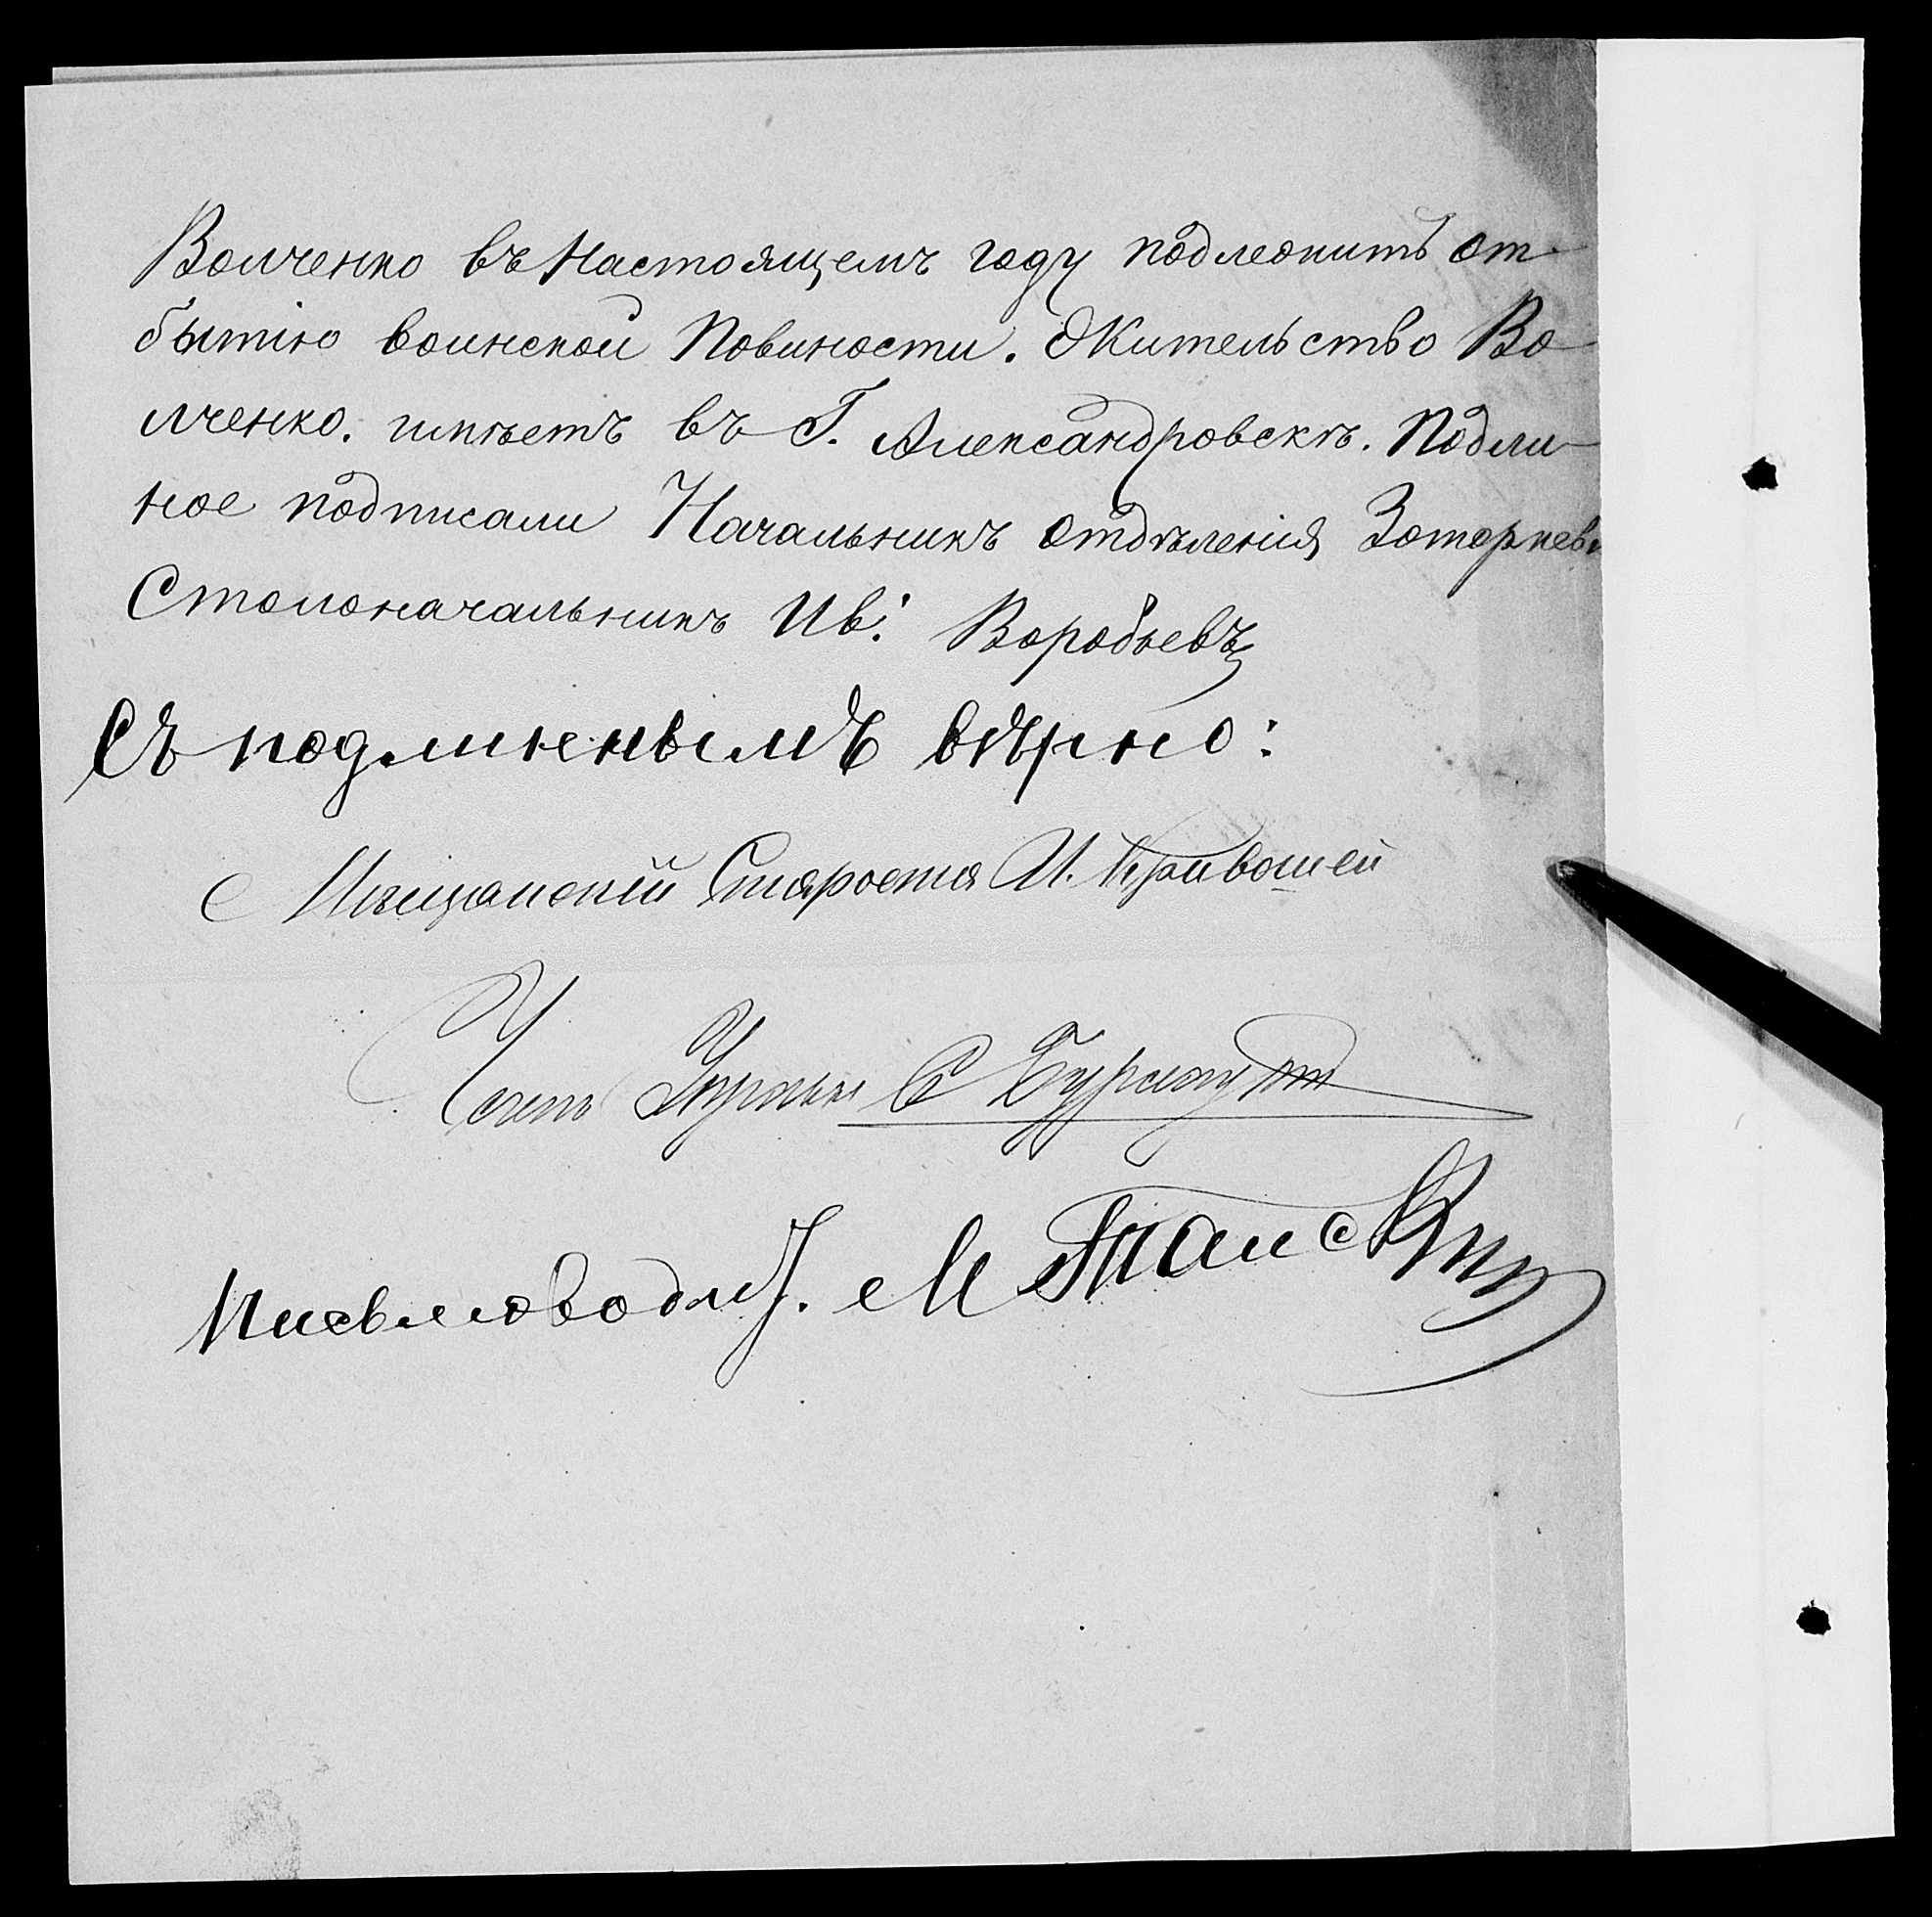 Волченко въ Настоящемъ году подлежитъ от-
бытію воинской Повиности. Жительство Во-
лченко. имѣетъ въ Г. Александровскѣ. Подли-
ное подписали Начальникъ отдѣленія
Столоначальникъ Ив: Воробьевъ
Съ подлиннымъ вѣрно:
Мѣщанскій Староста И. Кривошей
Членъ Управы С
Письмоводит. М